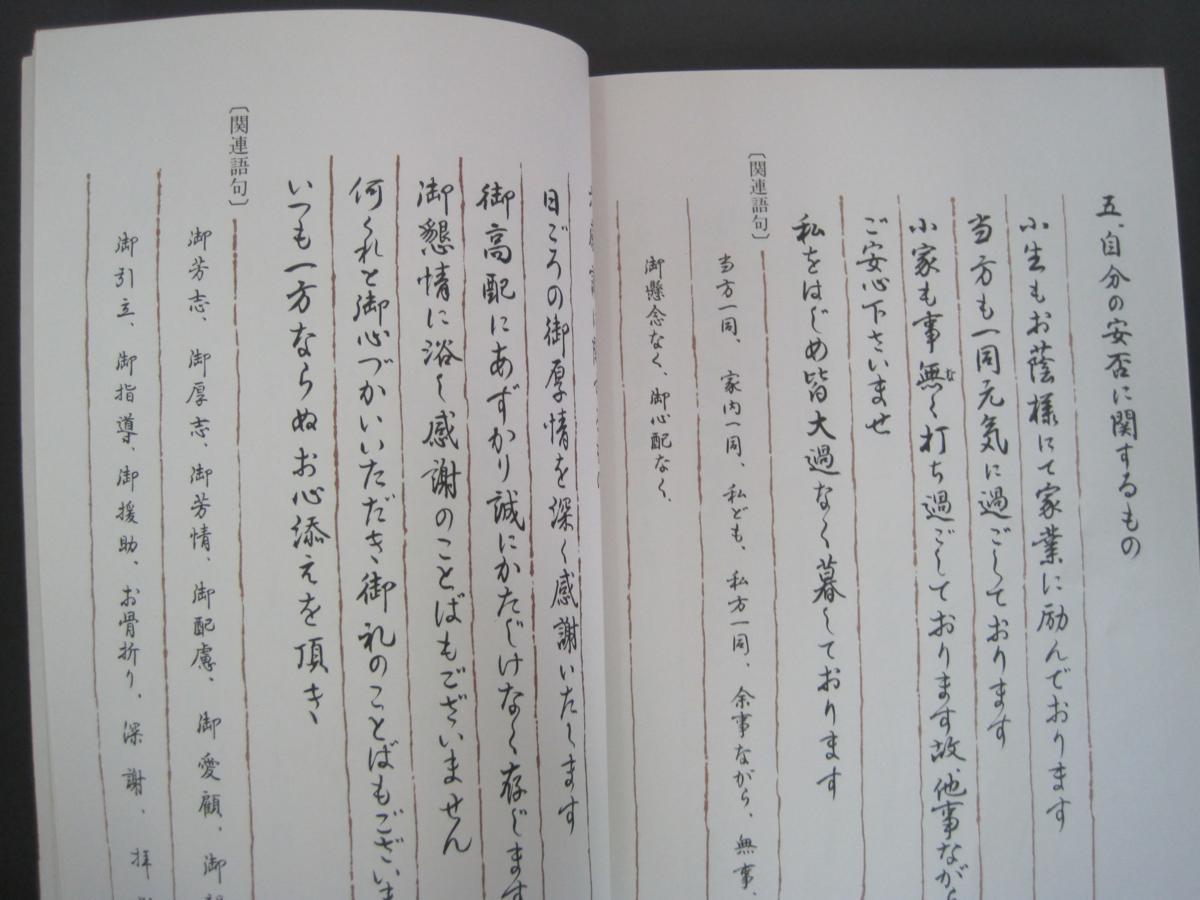 五、自分の安否に関するもの
小生もお蔭様にて家業に励んでおります
当方も一同元気に過ごしております
小家も事無く打ち過ごしております故、他事ながら
な
ご安心下さいませ
私をはじめ皆大過なく暮しております
〔関連語句〕
当方一同、家内一同、私ども、私方一同、余事ながら、無事、
御懸念なく、御心配なく、
日ごろの御厚情を深く感謝いたします
御高配にあずかり誠にかたじけなく存じます
御懇情に浴し感謝のことばもございません
何くれと御心づかいいただき御礼のことばもございま
いつも一方ならぬお心添えを頂き、
〔関連語句〕
御芳志、御厚志、御芳情、御配慮、御愛顧、御
御引立、御指導、御援助、お骨折り、深謝、拝